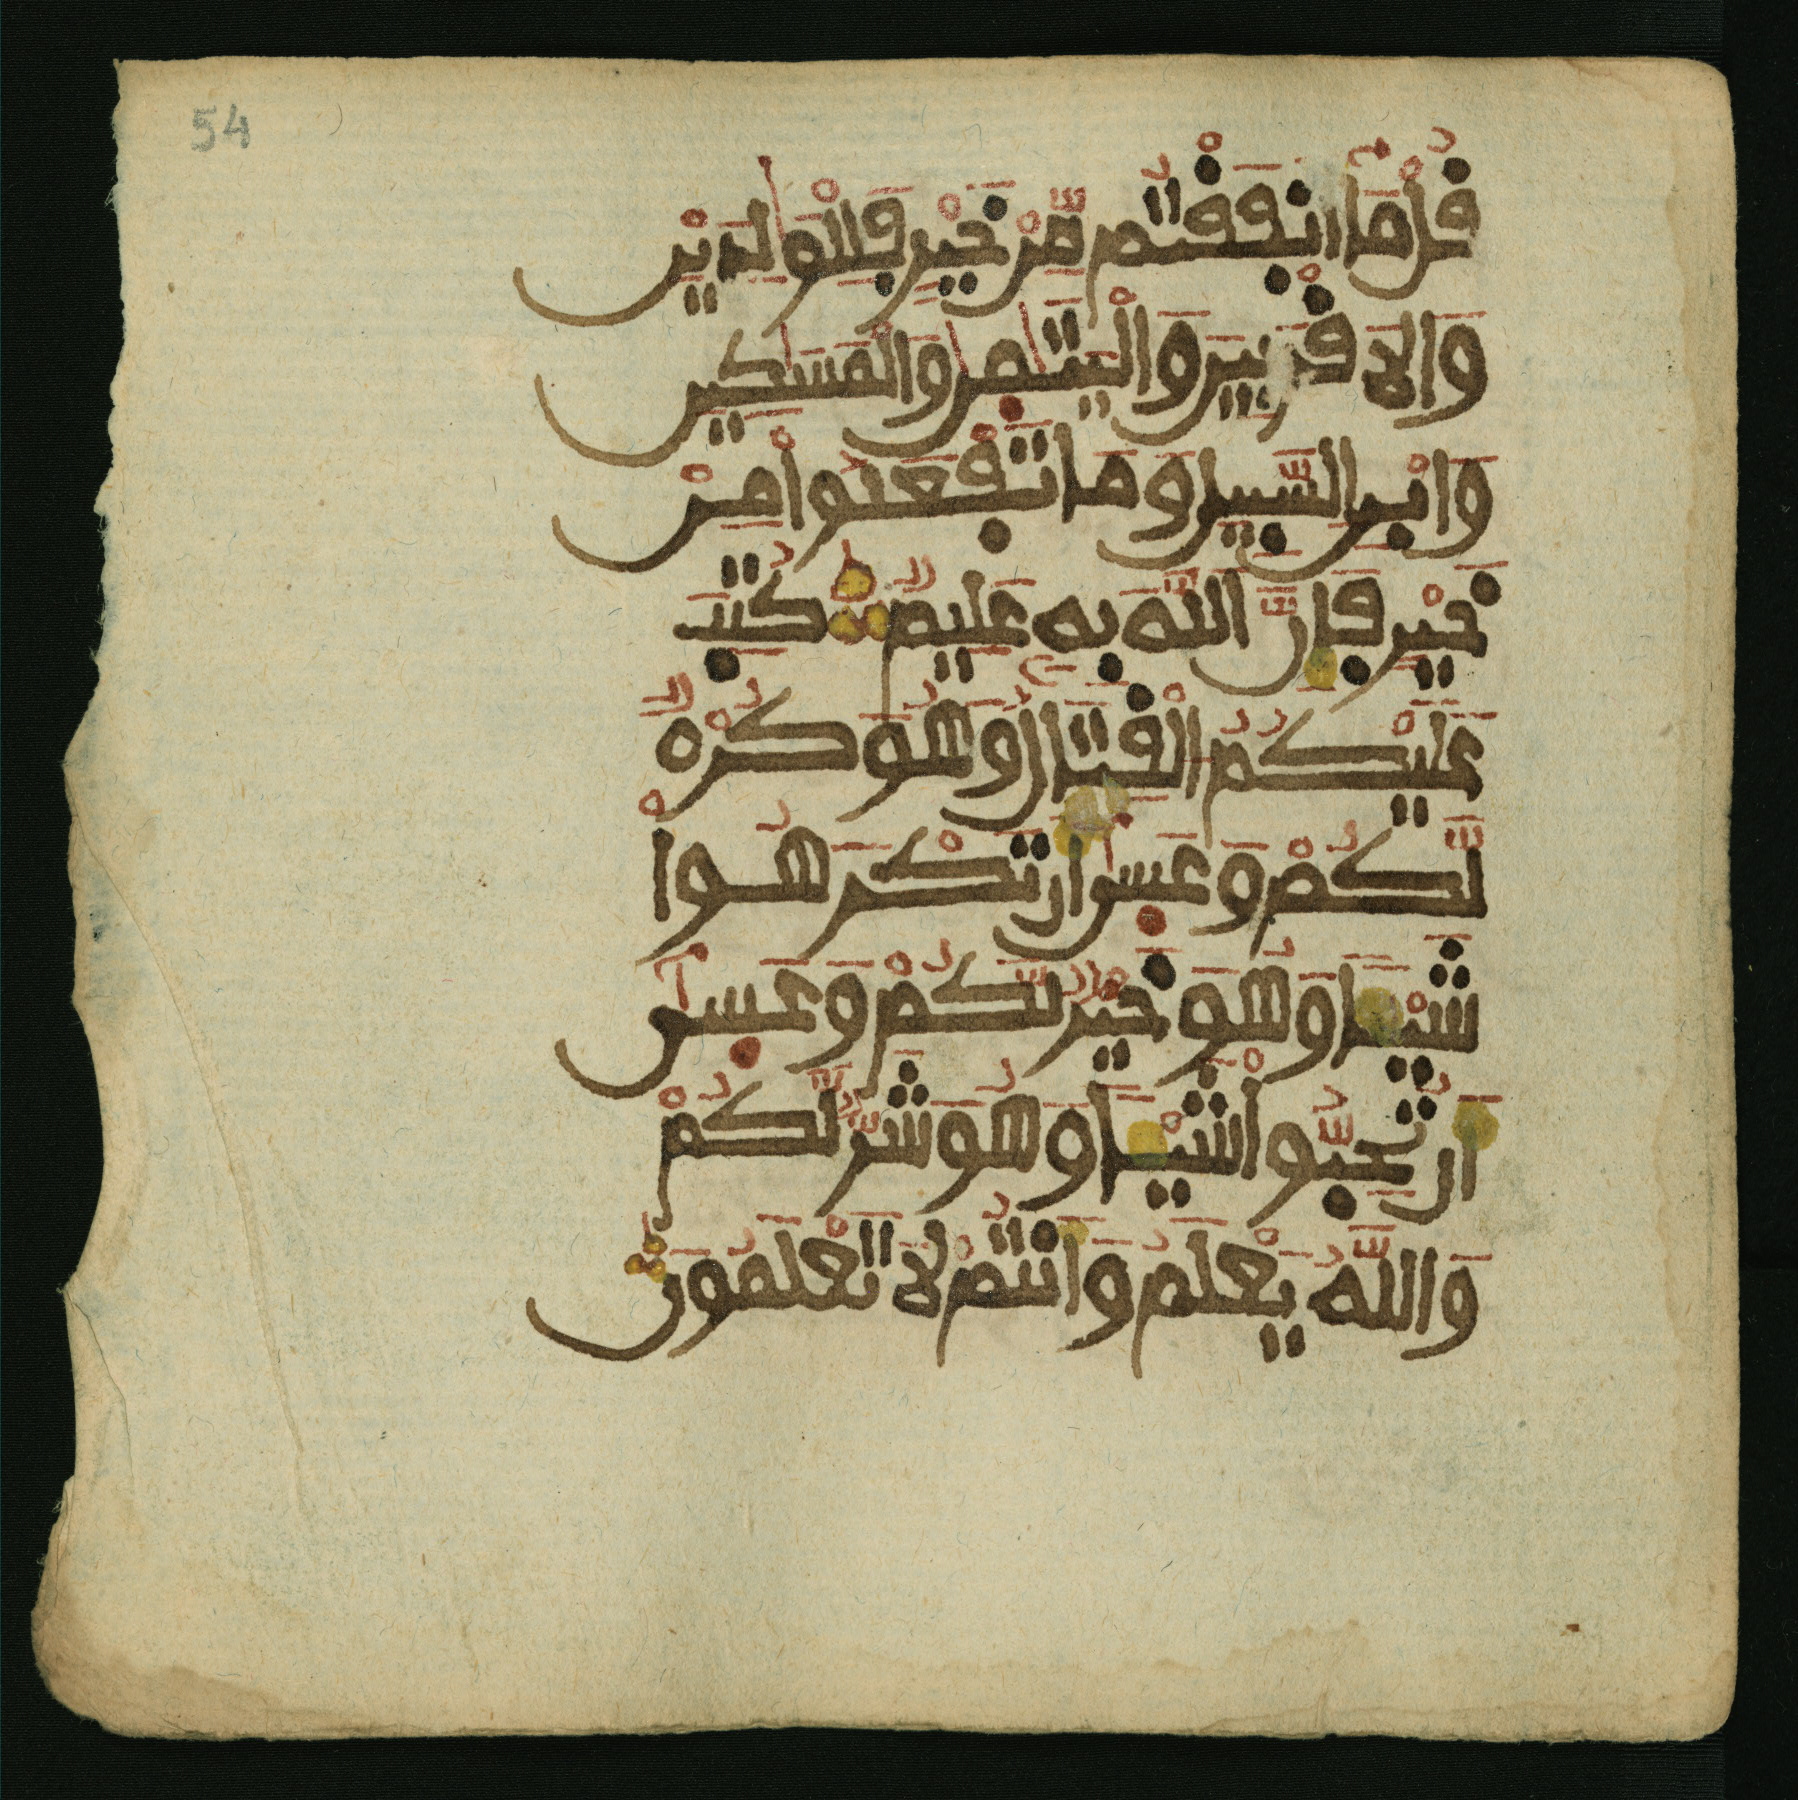 54
قُلْ مَآ أَنفَقْتُم مِّنْ خَيْرٍ فَلِلْوَٰلِدَيْنِ
وَالَاقْرَبِينَ وَالْيَتَٰمَىٰ وَالْمَسَٰكِينِ
وَابْنِ السَّبِيلِ وَمَا تَفْعَلُواْ مِنْ
خَيْرٍ فَإِنَّ اللَّهَ بِهِ عَلِيمٌ كُتِبَ
عَلَيْكُمُ الْقِتَالُ وَهُوَ كُرْهٌ
لَّكُمْ وَعَسَىٰ أَن تَكْرَهُواْ
شَيْئًا وَهُوَ خَيْرٌ لَّكُمْ وَعَسَىٰٓ
أَن تُحِبُّواْ شَيْئًا وَهُوَ شَرٌّ لَّكُمْ
وَاللَّهُ يَعْلَمُ وَأَنتُمْ لَا تَعْلَمُونَ